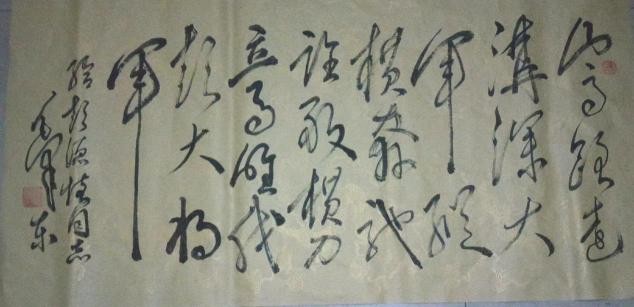 山高路遠
溝深大
軍縱
横奔馳
誰敢横刀
立馬唯我
彭大将
軍
给彭德怀同志
毛澤东